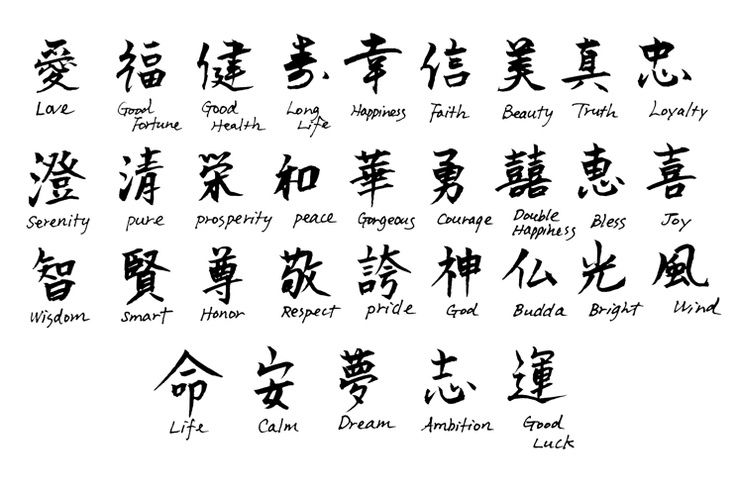 愛 福 健 寿 幸 信 美 真 忠
Love Good Fortune Good Health Long Life Happiness Faith Beauty Truth Loyalty
澄 清 栄 和 華 勇 囍 恵 喜
Serenity pure prosperity peace Gorgeous Courage Double Happiness Bless Joy
智 賢 尊 敬 誇 神 仏 光 風
Wisdom smart Honor Respect pride God Budda Bright Wind
命 安 夢 志 運
Life Calm Dream Ambition Good Luck